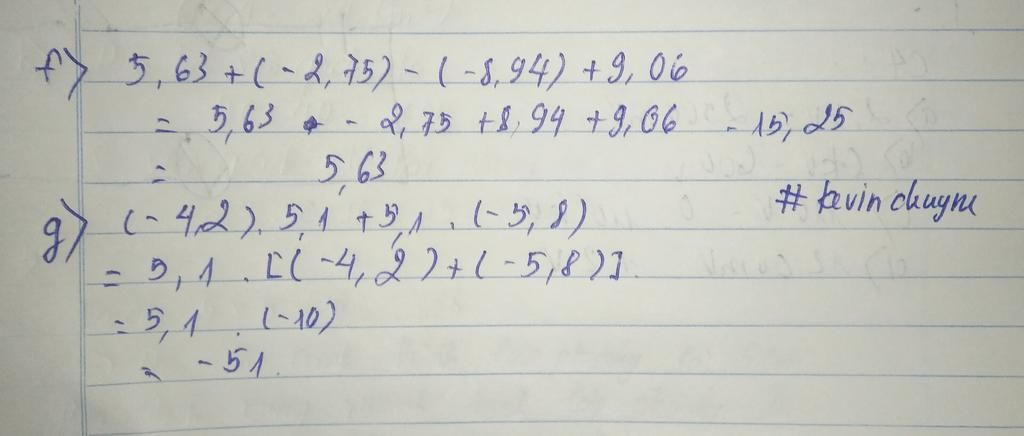 f) 5,63 + (-2,75) - (-8,94) + 9,06
= 5,63 - 2,75 + 8,94 + 9,06 - 15,25
= 5,63
# kevin chuym
g) (-4,2). 5,1 + 5,1 . (-5,8)
= 5,1 . [(-4,2) + (-5,8)].
= 5,1 . (-10)
= -51.